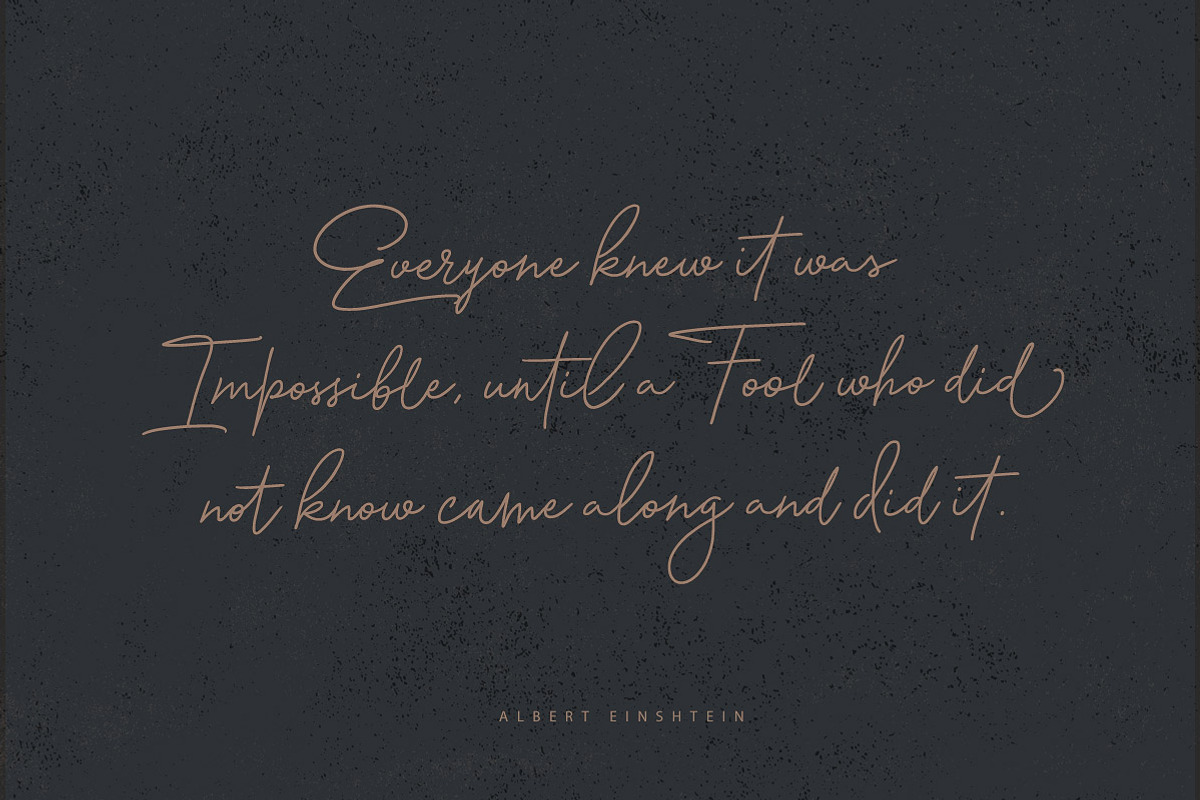 Everyone knew it was
Impossible, until a Fool who did
not know came along and did it.
ALBERT EINSHTEIN